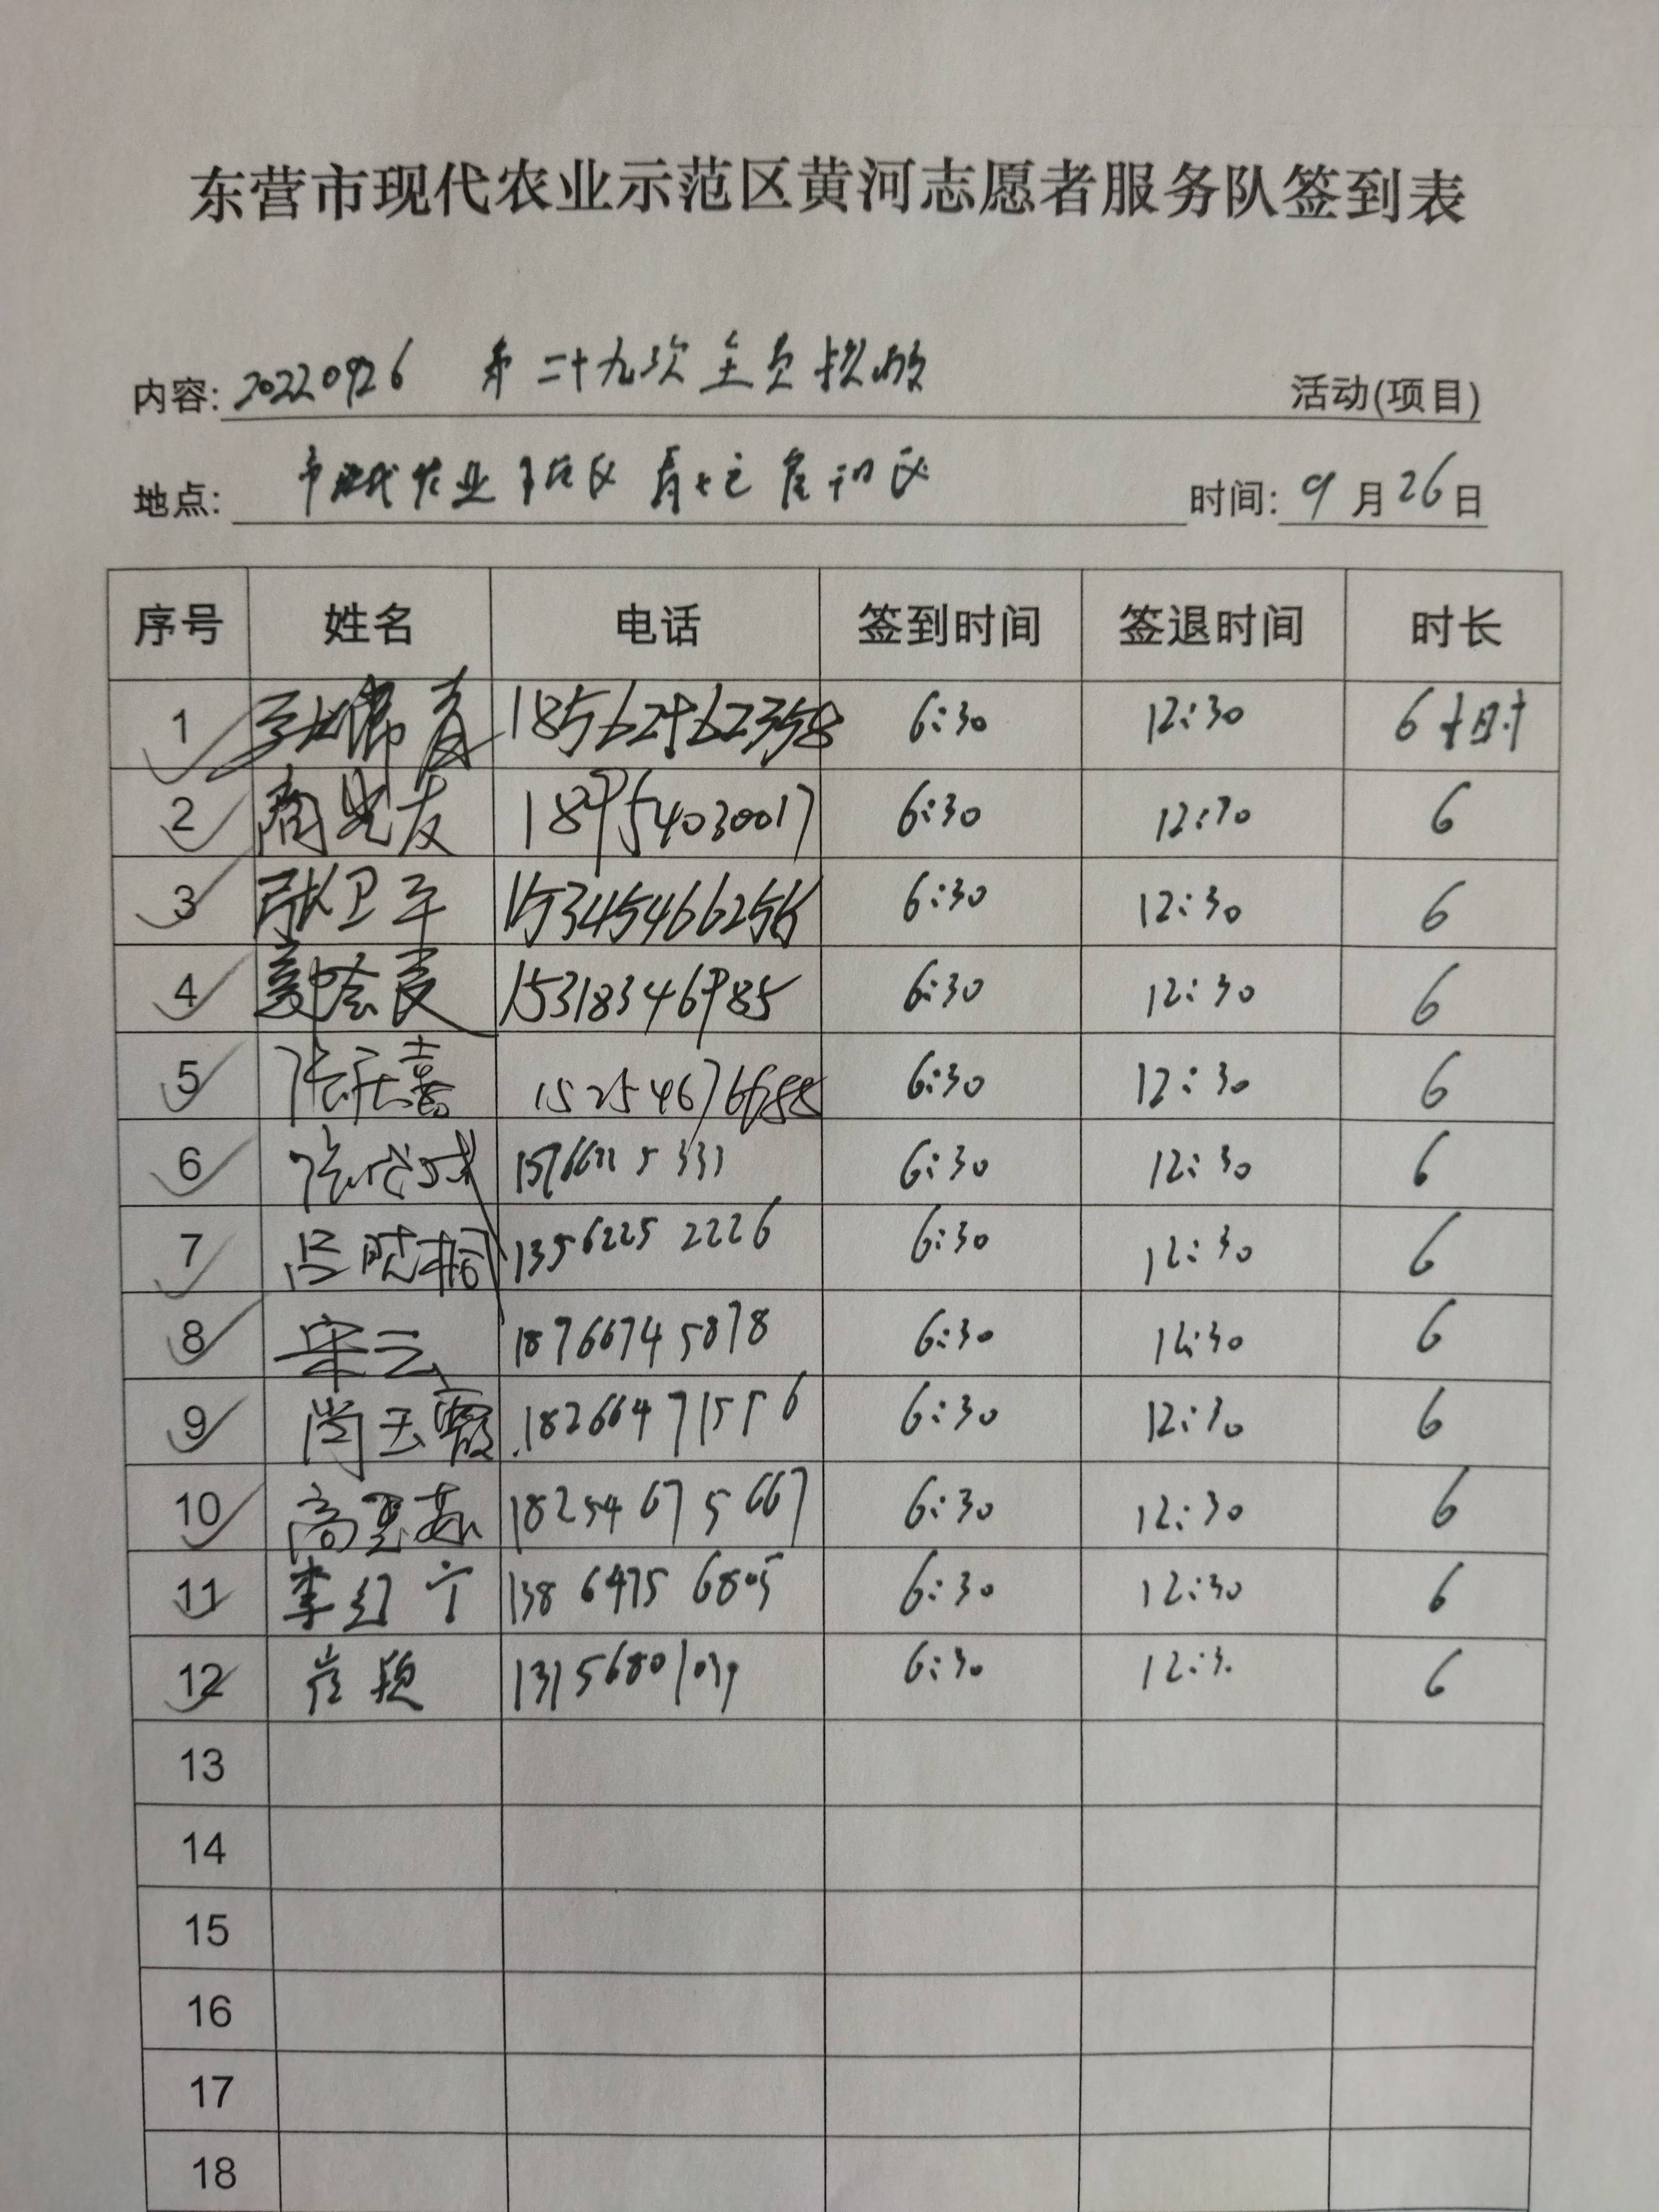 东营市现代农业示范区黄河志愿者服务队签到表
内容: 20220926 第二十九次全员核酸 活动(项目)
地点: 市现代农业示范区 时间: 9月26日
序号 姓名 电话 签到时间 签退时间 时长
1 18562962358 6:30 12:30 6小时
2 18954030017 6:30 12:30 6
3 张卫军 15345466256 6:30 12:30 6
4 15318346985 6:30 12:30 6
5 张天喜 6:30 12:30 6
6 6:30 12:30 6
7 吕晓桐 13562252226 6:30 12:30 6
8 宋云 18766745878 6:30 12:30 6
9 尚玉霞 18266471556 6:30 12:30 6
10 18254675667 6:30 12:30 6
11 李红宁 13864756805 6:30 12:30 6
12 崔艳 6:30 12:30 6
13
14
15
16
17
18